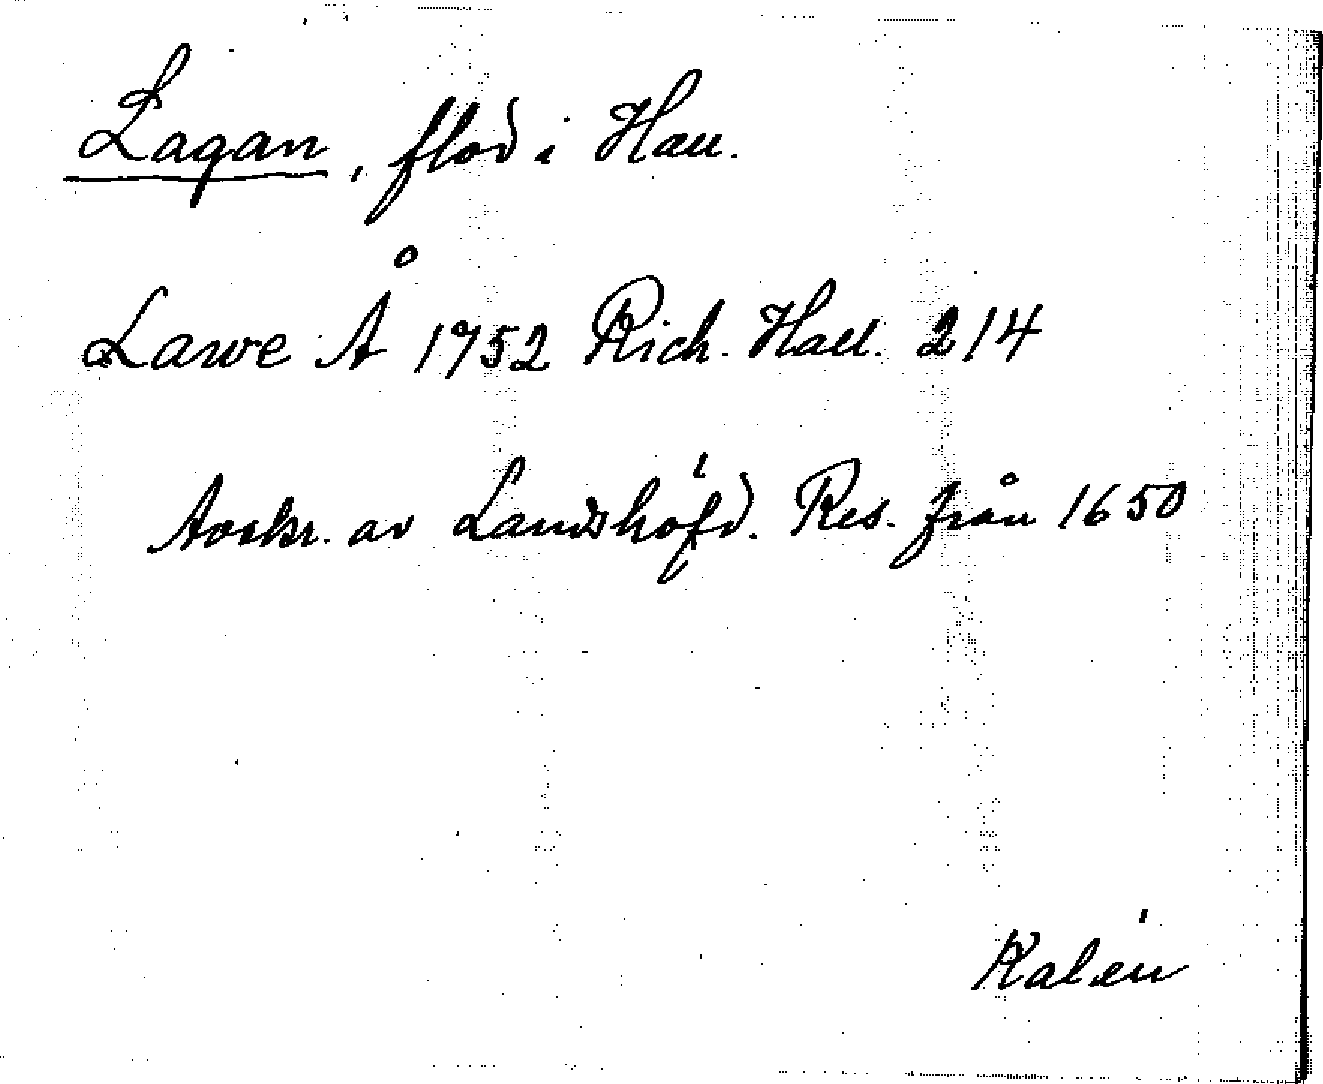 Lagan, flod i Hall.
Lawe Å 1752 Rich. Hall. 214
Avskr. av Landshöfd. Res. från 1650
Kalén